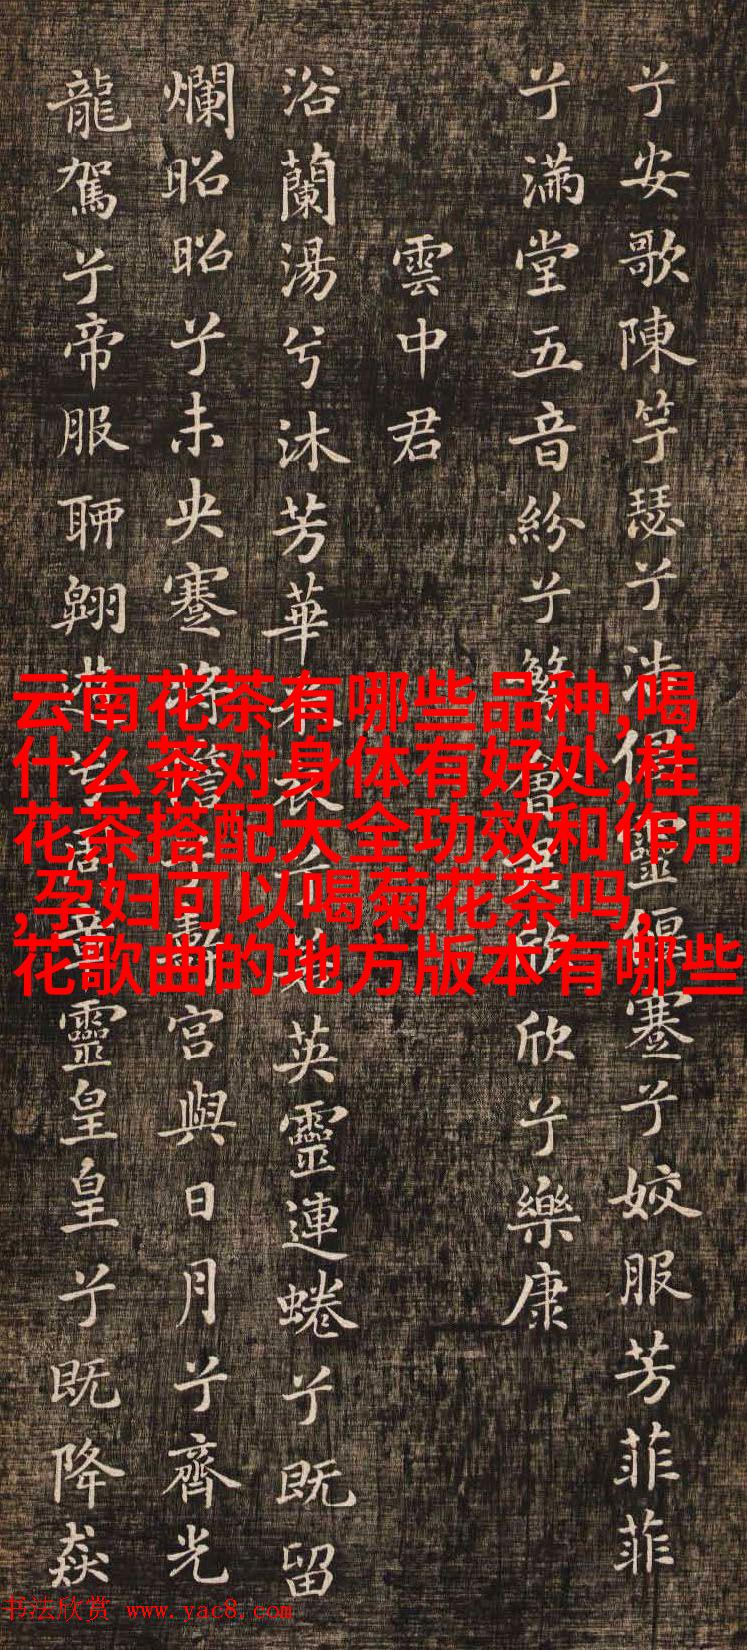 兮安歌陳竽瑟兮浩倡靈偃蹇兮姣服芳菲菲
兮滿堂五音紛兮繁會君欣欣兮樂康
雲中君
浴蘭湯兮沐芳華采衣兮若英靈連蜷兮既留
爛昭昭兮未央蹇將憺兮壽宮與日月兮齊光
龍駕兮帝服聊翱游兮周章靈皇皇兮既降猋
云南花茶有哪些品种,喝
什么茶对身体有好处,桂
花茶搭配大全功效和作用
,孕妇可以喝菊花茶吗,
花歌曲的地方版本有哪些
书法欣赏 www.yac8.com